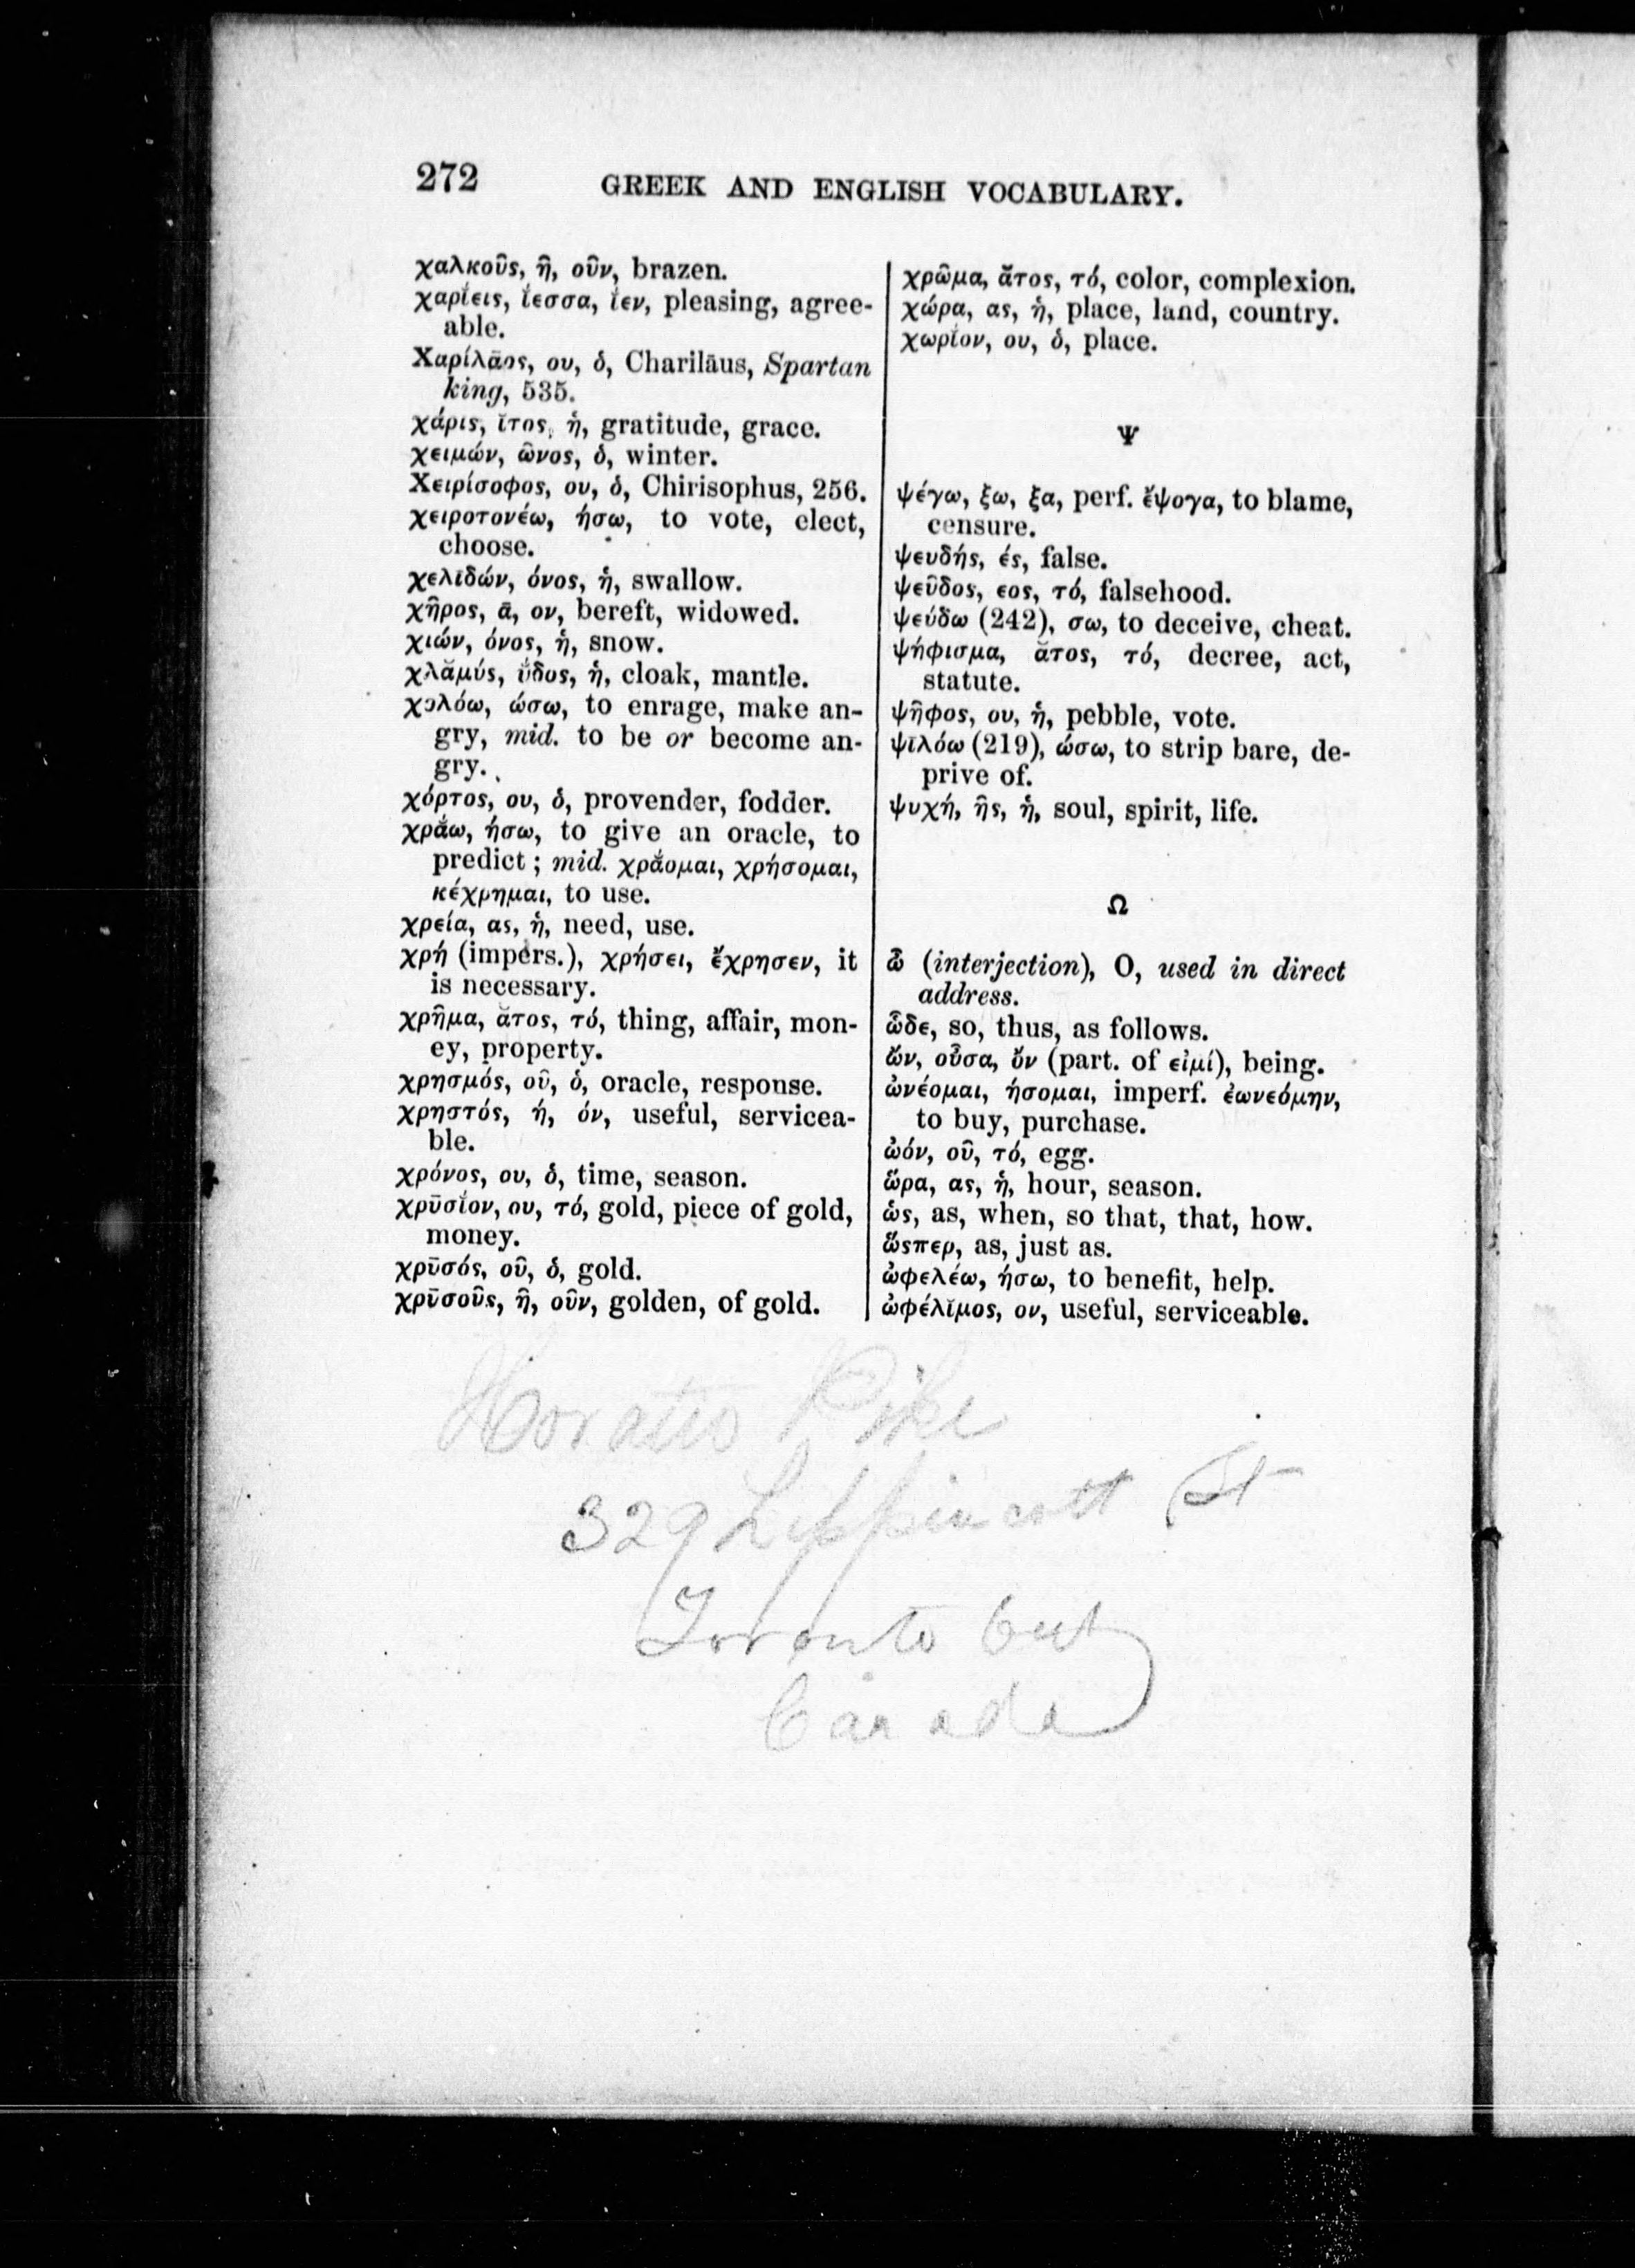 272 GREEK AND ENGLISH VOCABULARY.
χαλκοῦς, ῆ, οῦν, brazen.
χαρίεις, ίεσσα, ίεν, pleasing, agree-
able.
Χαρίλᾱος, ου, ὁ, Charilāus, Spartan
king, 535.
χάρις, ῐτος, ἡ, gratitude, grace.
χειμών, ῶνος, ὁ, winter.
Χειρίσοφος, ου, ὁ, Chirisophus, 256.
χειροτονέω, ήσω, to vote, elect,
choose.
χελῑδών, όνος, ἡ, swallow.
χῆρος, ᾱ, ον, bereft, widowed.
χιών, όνος, ἡ, snow.
χλᾰμύς, ῠ́δος, ἡ, cloak, mantle.
χολόω, ώσω, to enrage, make an-
gry, mid. to be or become an-
gry.
χόρτος, ου, ὁ, provender, fodder.
χρᾰ́ω, ήσω, to give an oracle, to
predict; mid. χρᾰ́ομαι, χρήσομαι,
κέχρημαι, to use.
χρεία, ας, ἡ, need, use.
χρή (impers.), χρήσει, ἔχρησεν, it
is necessary.
χρῆμα, ᾰτος, τό, thing, affair, mon-
ey, property.
χρησμός, οῦ, ὁ, oracle, response.
χρηστός, ή, όν, useful, servicea-
ble.
χρόνος, ου, ὁ, time, season.
χρῡσῐ́ον, ου, τό, gold, piece of gold,
money.
χρῡσός, οῦ, ὁ, gold.
χρῡσοῦς, ῆ, οῦν, golden, of gold.
χρῶμα, ᾰτος, τό, color, complexion.
χώρα, ας, ἡ, place, land, country.
χωρῐ́ον, ου, ὁ, place.
Ψ
ψέγω, ξω, ξα, perf. ἔψογα, to blame,
censure.
ψευδής, ές, false.
ψεῦδος, εος, τό, falsehood.
ψεύδω (242), σω, to deceive, cheat.
ψήφισμα, ᾰτος, τό, decree, act,
statute.
ψῆφος, ου, ἡ, pebble, vote.
ψῑλόω (219), ώσω, to strip bare, de-
prive of.
ψυχή, ῆς, ἡ, soul, spirit, life.
Ω
ὦ (interjection), O, used in direct
address.
ὧδε, so, thus, as follows.
ὤν, οὖσα, ὄν (part. of εἰμί), being.
ὠνέομαι, ήσομαι, imperf. ἐωνεόμην,
to buy, purchase.
ὠόν, οῦ, τό, egg.
ὥρα, ας, ἡ, hour, season.
ὡς, as, when, so that, that, how.
ὥςπερ, as, just as.
ὠφελέω, ήσω, to benefit, help.
ὠφέλῐμος, ον, useful, serviceable.
Horatio Pike
329 Lippincott St
Toronto
Canada